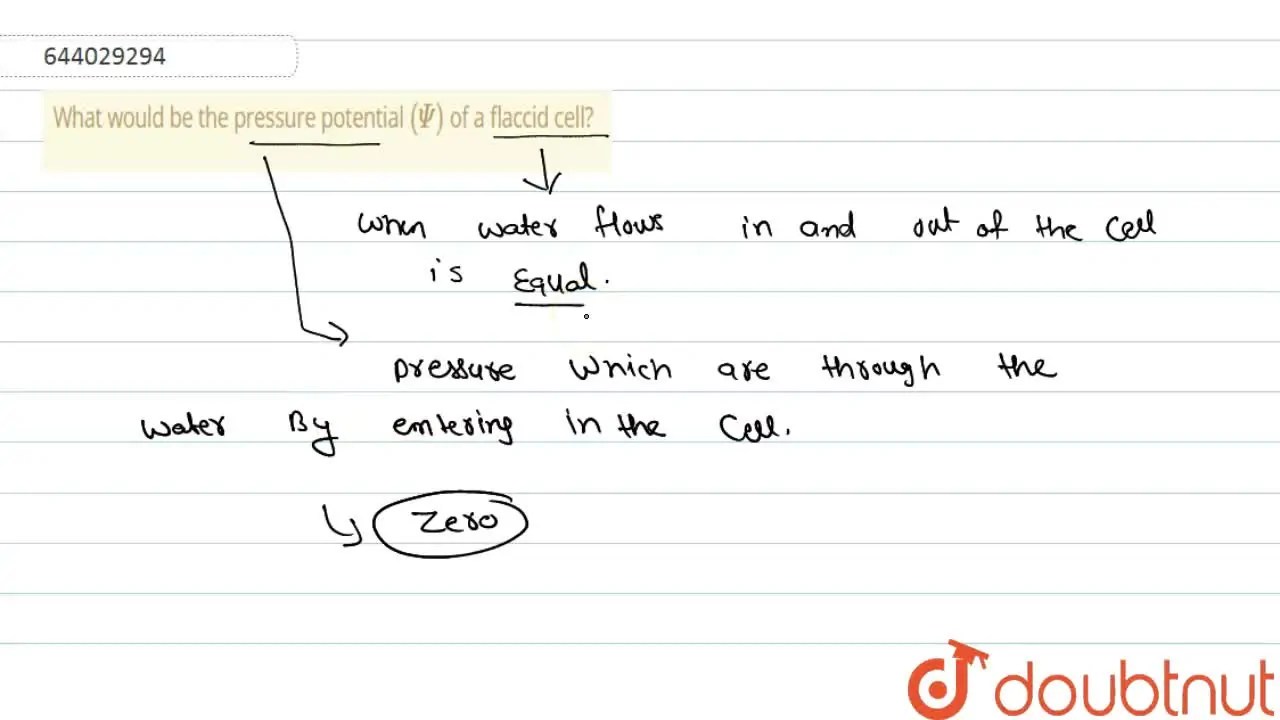 644029294
What would be the pressure potential (Ψ) of a flaccid cell?
When water flows in and out of the Cell
is Equal.
Pressure Which are through the
water By entering in the Cell.
Zero
doubtnut